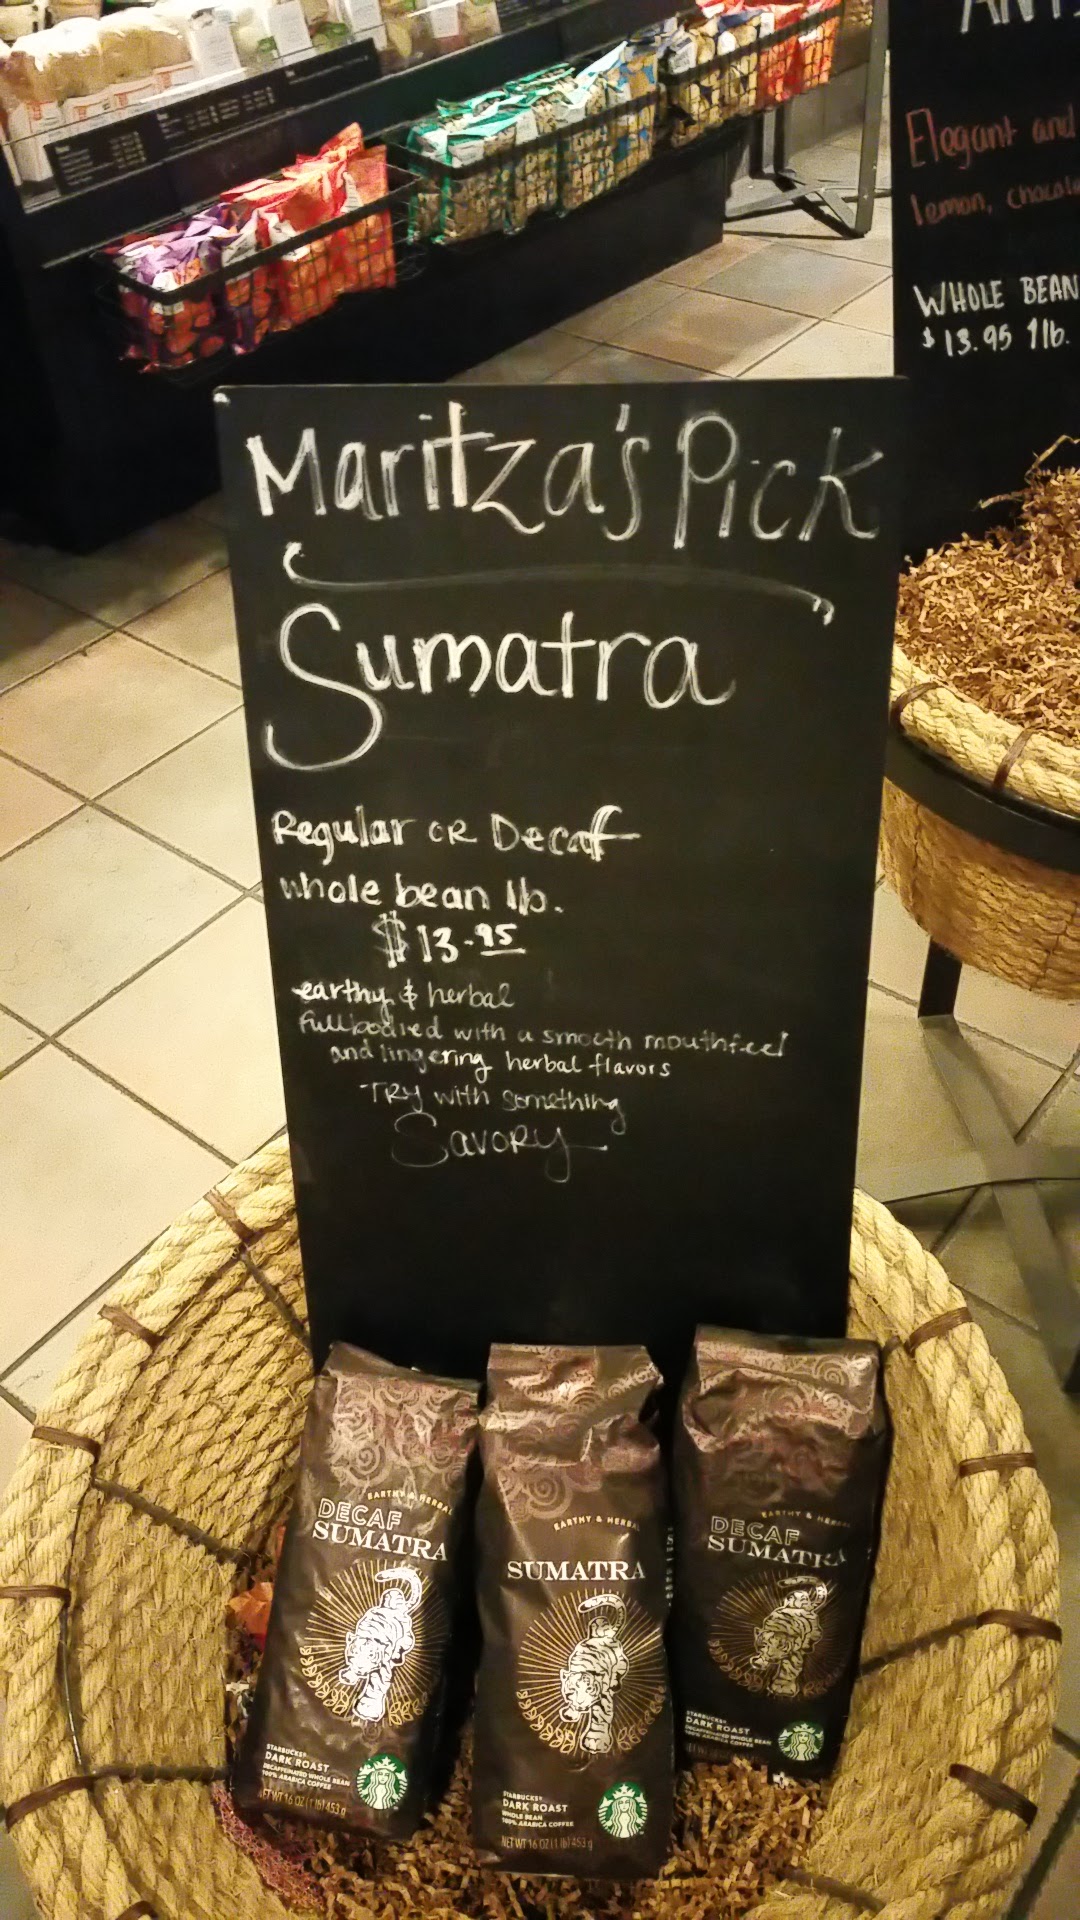 AN
Elegant and
lemon,
WHOLE BEAN
$13.95 1lb.
Maritza's Pick
Sumatra
Regular or Decaf
whole bean 1lb.
$13.95
earthy & herbal
full bodied with a smooth mouthfeel
and lingering herbal flavors
TRY with something
Savory
EARTHY & HERBAL
DECAF
SUMATRA
STARBUCKS®
DARK ROAST
DECAFFEINATED WHOLE BEAN
100% ARABICA COFFEE
NET WT 16 OZ (1 lb) 453 g
EARTHY & HERBAL
SUMATRA
STARBUCKS®
DARK ROAST
WHOLE BEAN
100% ARABICA COFFEE
NET WT 16 OZ (1 lb) 453 g
EARTHY & HERBAL
DECAF
SUMATRA
STARBUCKS®
DARK ROAST
DECAFFEINATED WHOLE BEAN
100% ARABICA COFFEE